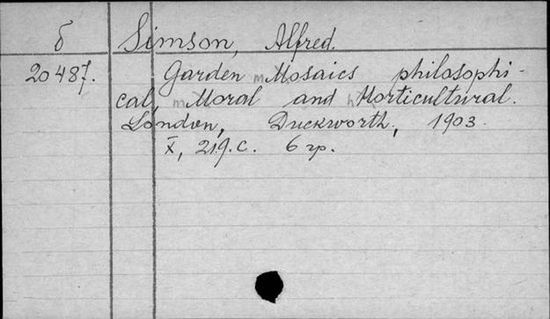 б Simson, Alfred.
20487. Garden Mosaics philosophi-
cal, Moral and Horticultural.
London, Duckworth, 1903.
X, 219.c. 6 гр.